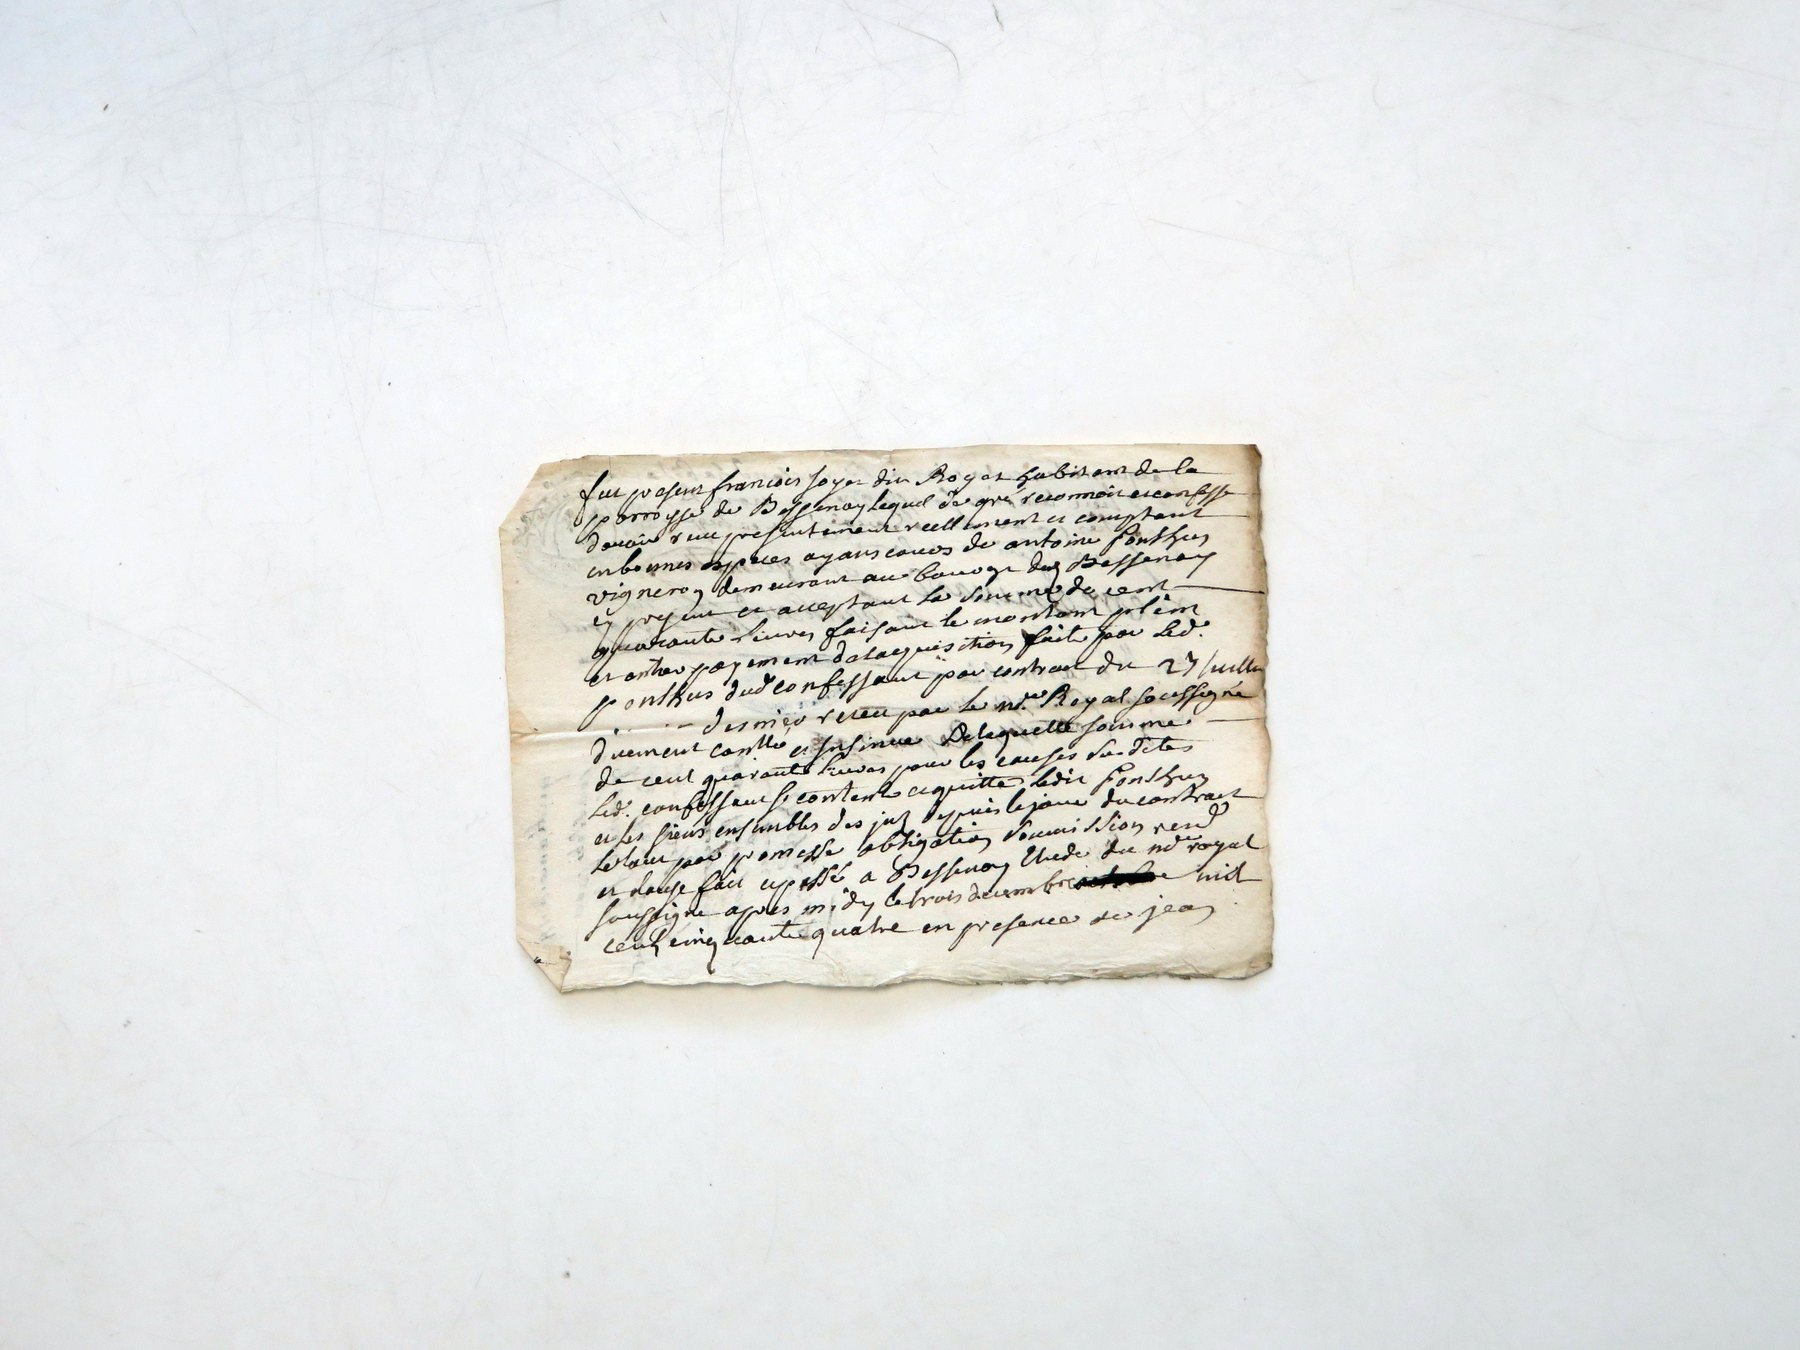 fut present francois soyer dit Royet habitant de la
parroysse de Bessenay lequel de gré reconnoit et confesse
davoir receu presentement reellement et comptant
en bonnes especes ayans cours de antoine Ponthus
vigneron demeurant au bourg dud Bessenay
cy present et acceptant la somme de cent
quarante livres faisant le montant plein
et entier payement de lacquisition faite par led.
ponthus dud confessant par contract du 27 Juillet
dernier receu par le nre Royal soussigné
duement conllé et insinué De laquelle somme
de cent quarante livres pour les causes susdites
led. confessant se contente et quitte ledit Ponthus
et les siens ensembles des jntz depuis le jour du contract
le tout par promesse obligation soumission rend
et clause fait et passé a Bessenay Etude du nre royal
soussigné apres midy le trois decembre mil
cents cinquante quatre en presence de jean